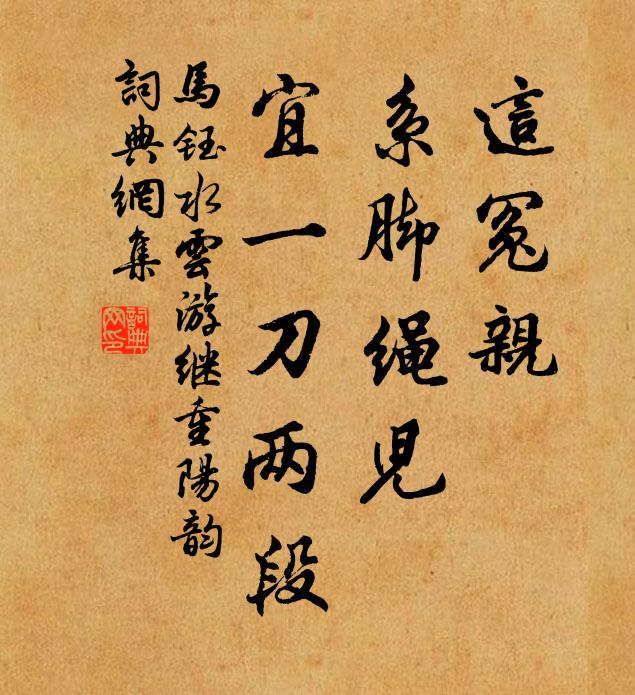 這冤親
系脚繩児
宜一刀两段
馬鈺水雲游继重陽韵
詞典網集
詞典網印